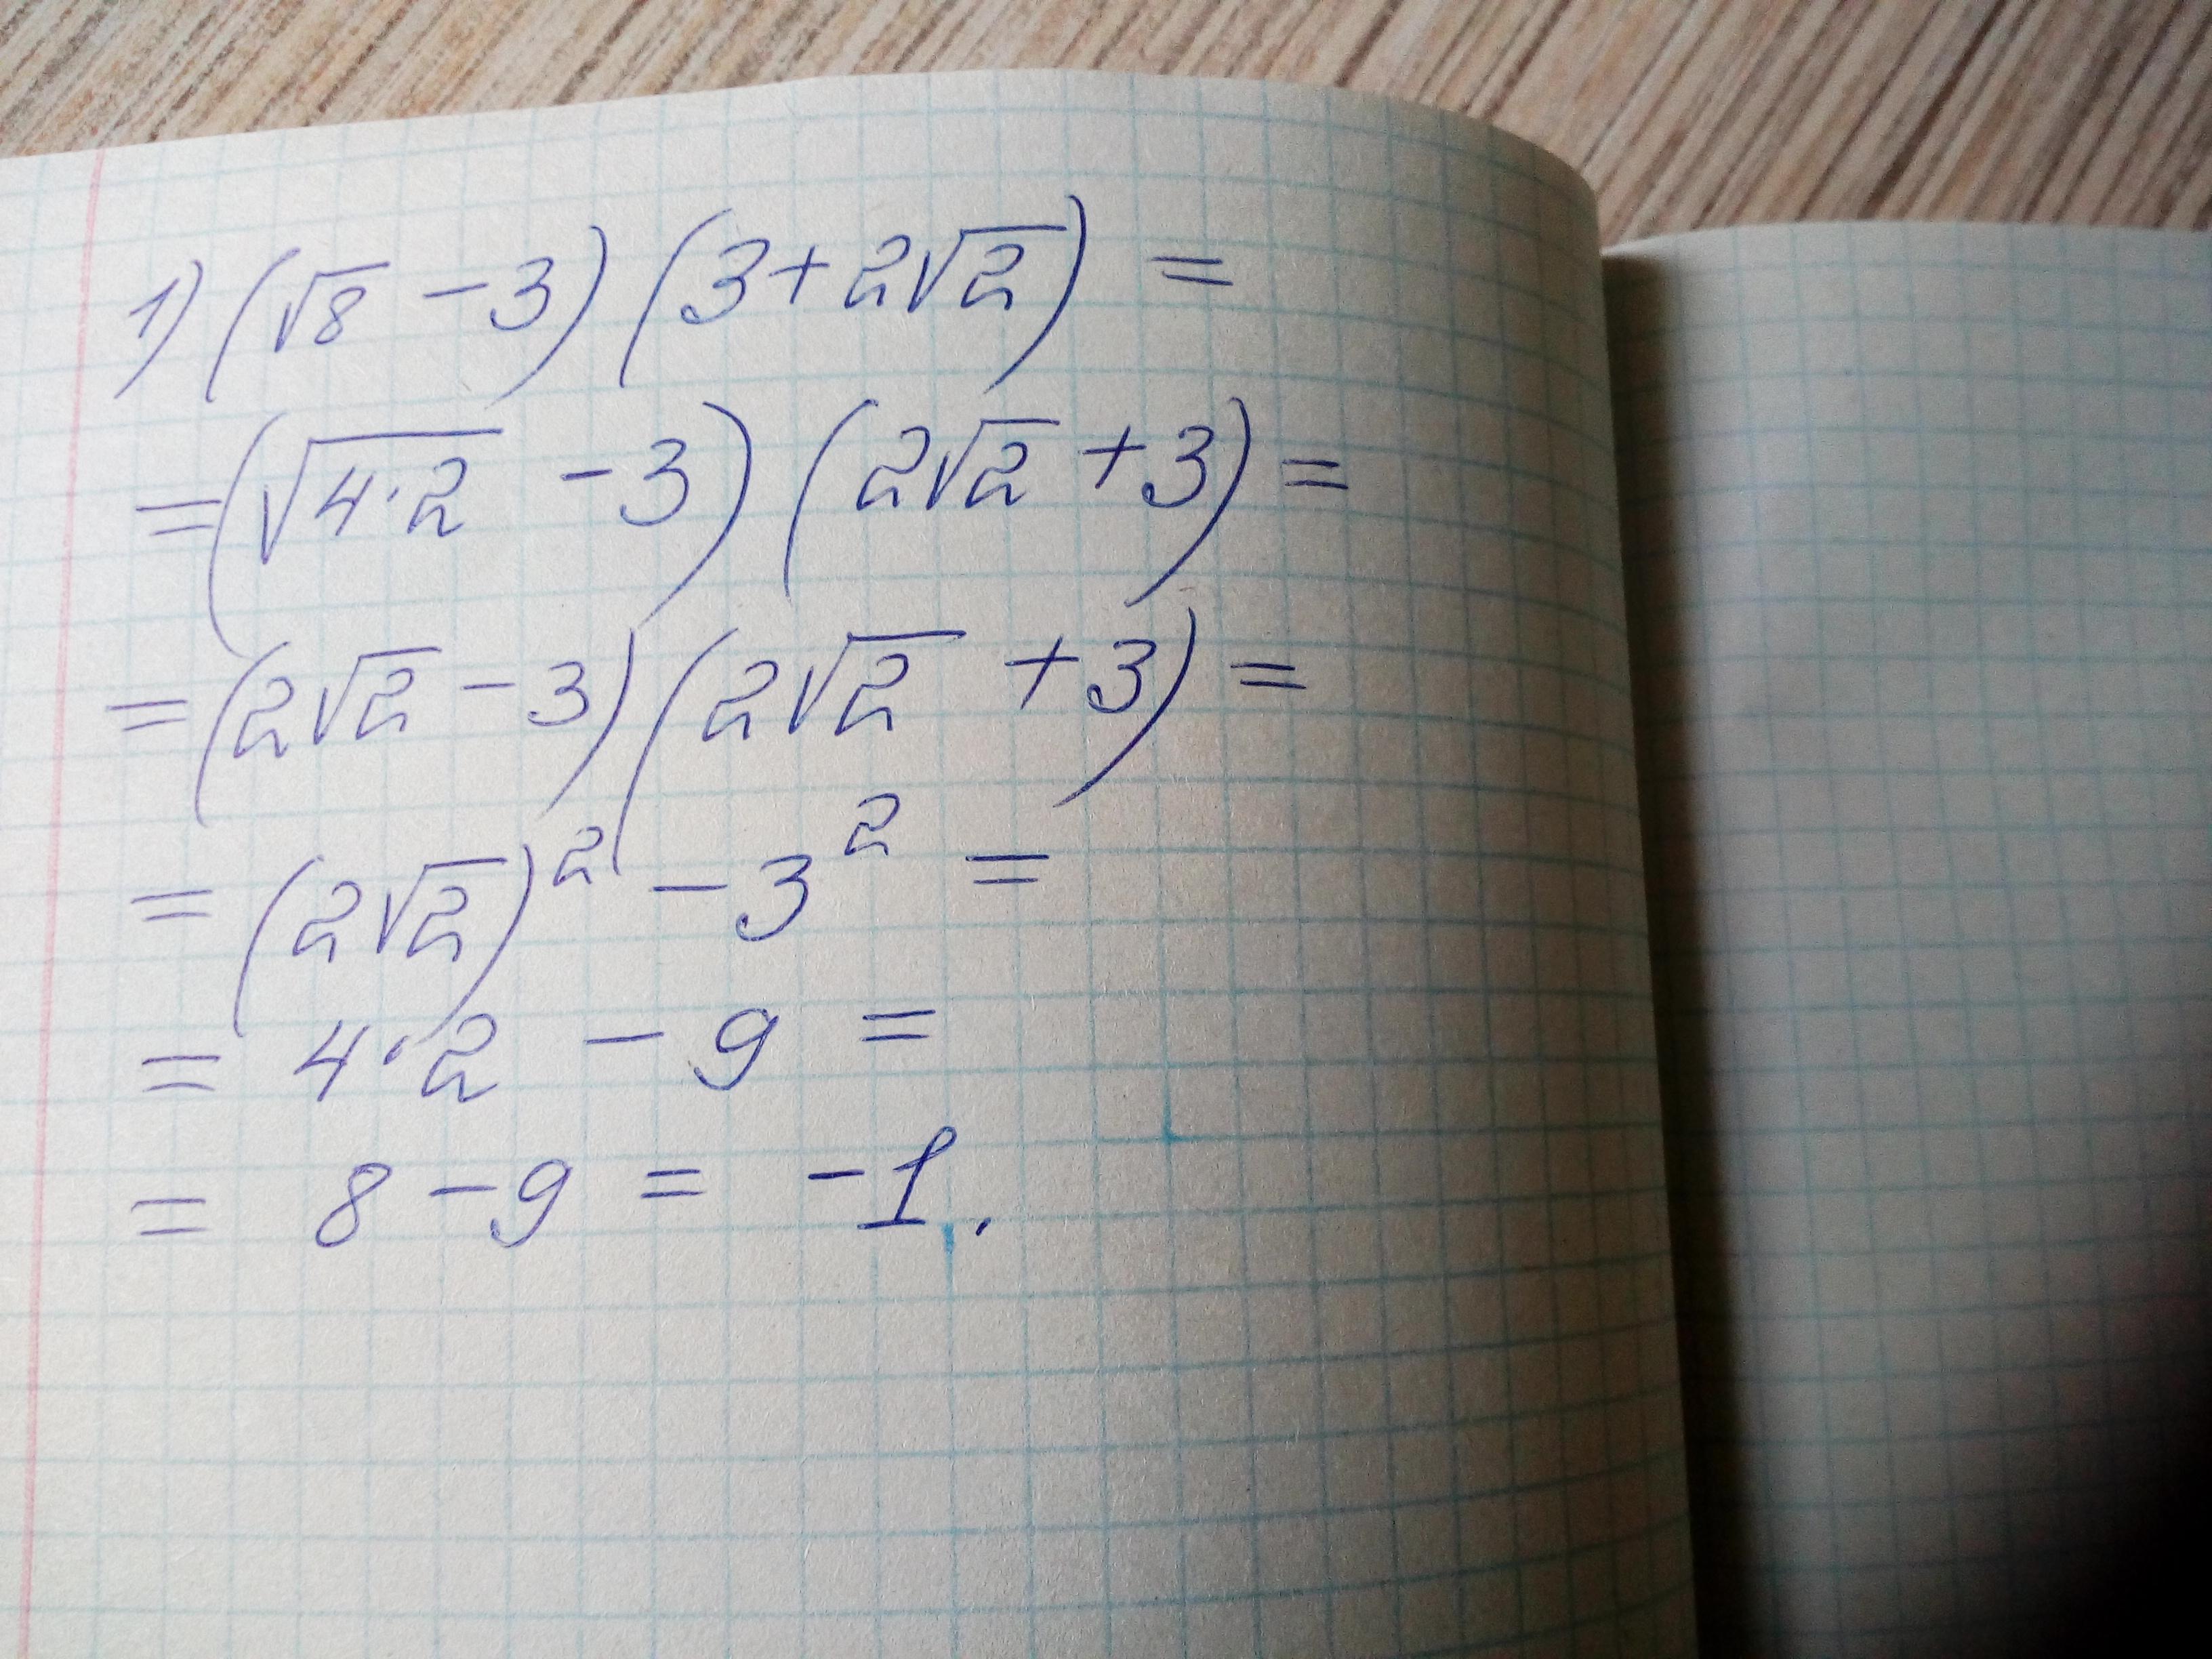 1) (√8 - 3) (3 + 2√2) =
= (√4·2 - 3) (2√2 + 3) =
= (2√2 - 3) (2√2 + 3) =
= (2√2)² - 3² =
= 4·2 - 9 =
= 8 - 9 = -1.